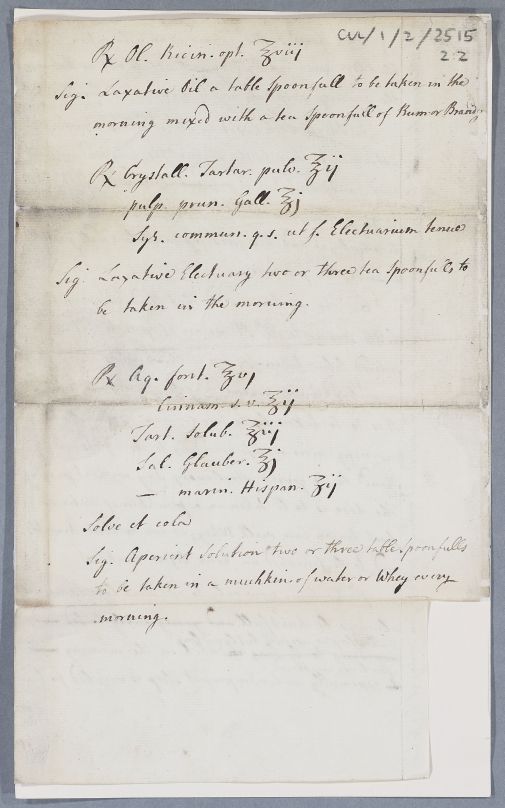 CUL/1/2/2515
22
℞ Ol. Ricin. opt. ℥viij
Sig. Laxative Oil a table Spoonfull to be taken in the
morning mixed with a tea Spoonfull of Rum or Brandy
℞ Crystall. Tartar. pulv. ℥ij
pulp. prun. Gall. ℥j
Syr. commun. q.s. ut f. Electuarium tenue
Sig. Laxative Electuary two or three tea Spoonfulls to
be taken in the morning.
℞ Aq. font. ℥vj
Cinnam. s.v. ℥ij
Tart. Solub. ℥iij
Sal. Glauber. ℥j
— marin. Hispan. ℥ij
Solve et cola
Sig. Aperient Solution two or three table Spoonfulls
to be taken in a muchkin of water or Whey every
morning.